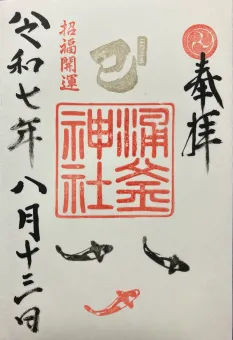 奉拝
招福開運
巳
涌釜神社
令和七年 八月十三日